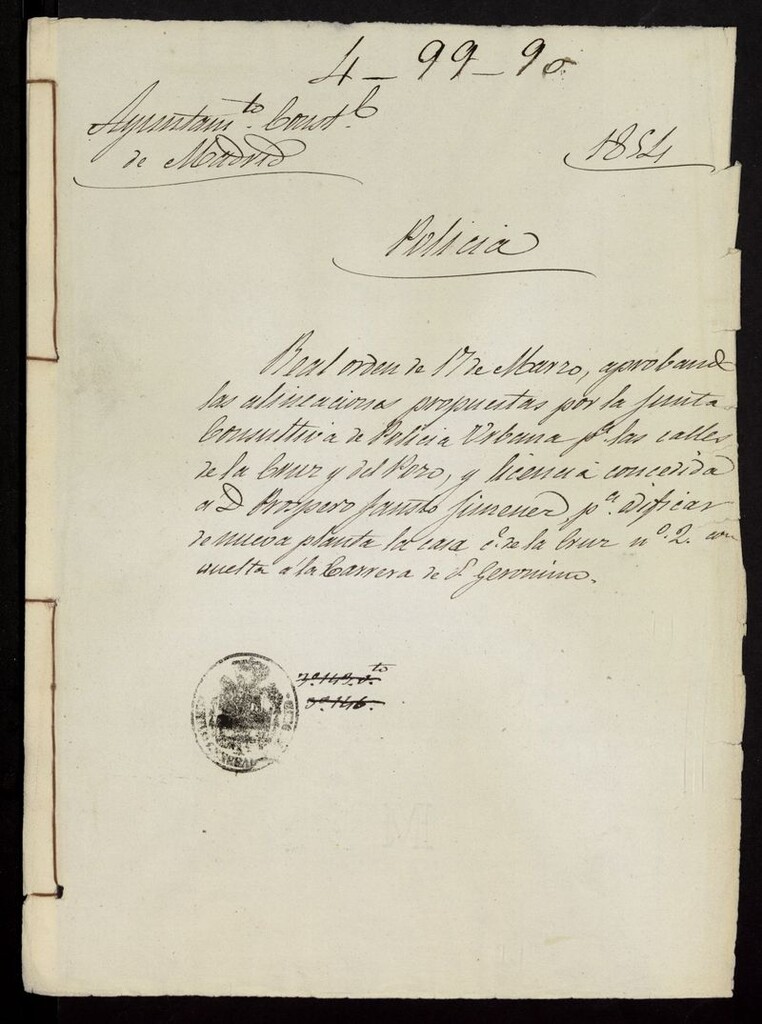 4-99-90
Ayuntam.to Const.l
de Madrid
1854
Policia
Real orden de 17 de Marzo, aproband
las alineaciones propuestas por la Junta
Consultiva de Policia Urbana p.a las calles
de la Cruz y del Pozo, y licencia concedida
a D. Prospero Fausto Jimenez p.a edificar
de nueva planta la casa c.e de la Cruz n.o 2. con
vuelta á la Carrera de S. Geronimo.